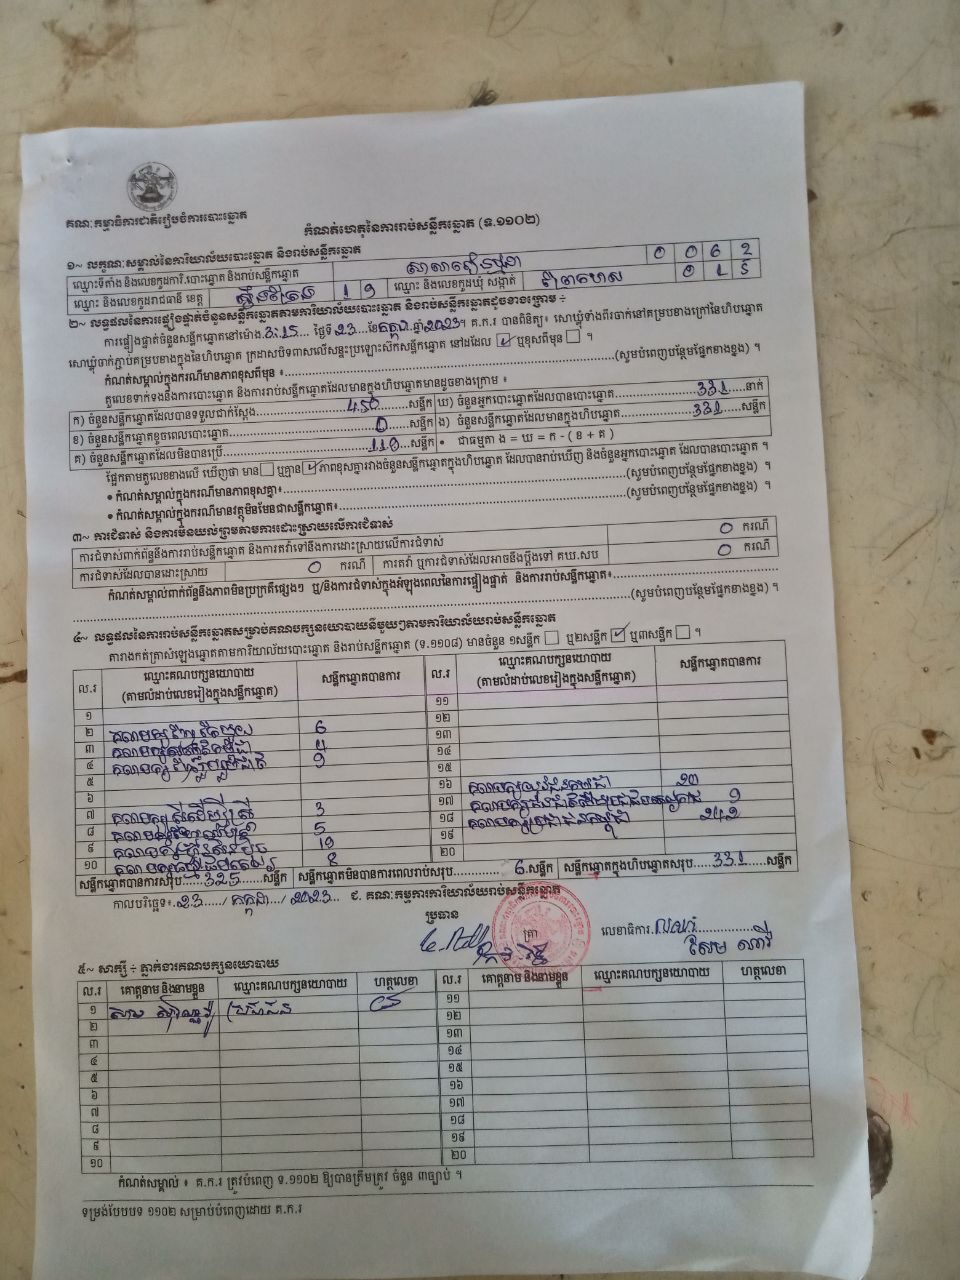 គណៈកម្មាធិការជាតិរៀបចំការបោះឆ្នោត
កំណត់ហេតុនៃការរាប់សន្លឹកឆ្នោត (ទ.១១០២)
១~ លក្ខណៈសម្គាល់នៃការិយាល័យបោះឆ្នោត និងរាប់សន្លឹកឆ្នោត
ឈ្មោះទីតាំង និងលេខកូដការិ.បោះឆ្នោត និងរាប់សន្លឹកឆ្នោត 0 0 6 2
ឈ្មោះ និងលេខកូដរាជធានី ខេត្ត ស្ទឹងត្រែង 1 9 ឈ្មោះ និងលេខកូដឃុំ សង្កាត់ 0 1 5
២~ លទ្ធផលនៃការផ្ទៀងផ្ទាត់ចំនួនសន្លឹកឆ្នោតតាមការិយាល័យបោះឆ្នោត និងរាប់សន្លឹកឆ្នោតដូចខាងក្រោម ÷
ការផ្ទៀងផ្ទាត់ចំនួនសន្លឹកឆ្នោតនៅម៉ោង 3:15 ថ្ងៃទី 23 ខែ កក្កដា ឆ្នាំ 2023។ គ.ក.រ បានពិនិត្យ៖ សោឃ្មុំទាំងពីរចាក់នៅគម្របខាងក្រៅនៃហិបឆ្នោត
សោឃ្មុំចាក់ភ្ជាប់គម្របខាងក្នុងនៃហិបឆ្នោត ក្រដាសបិទពាសលើសន្ទះប្រឡោះស៊កសន្លឹកឆ្នោត នៅដដែល ✓ ឬខុសពីមុន ។
កំណត់សម្គាល់ក្នុងករណីមានភាពខុសពីមុន ៖ (សូមបំពេញបន្ថែមផ្នែកខាងខ្នង) ។
តួលេខទាក់ទងនឹងការបោះឆ្នោត និងការរាប់សន្លឹកឆ្នោតដែលមានក្នុងហិបឆ្នោតមានដូចខាងក្រោម ៖
ក) ចំនួនសន្លឹកឆ្នោតដែលបានទទួលជាក់ស្តែង 450 សន្លឹក ឃ) ចំនួនអ្នកបោះឆ្នោតដែលបានបោះឆ្នោត 331 នាក់
ខ) ចំនួនសន្លឹកឆ្នោតខូចពេលបោះឆ្នោត 0 សន្លឹក ង) ចំនួនសន្លឹកឆ្នោតដែលមានក្នុងហិបឆ្នោត 331 សន្លឹក
គ) ចំនួនសន្លឹកឆ្នោតដែលមិនបានប្រើ 119 សន្លឹក • ជាធម្មតា ង = ឃ = ក - ( ខ + គ )
ផ្អែកតាមតួលេខខាងលើ ឃើញថា មាន ឬគ្មាន ✓ ភាពខុសគ្នារវាងចំនួនសន្លឹកឆ្នោតក្នុងហិបឆ្នោត ដែលបានរាប់ឃើញ និងចំនួនអ្នកបោះឆ្នោត ដែលបានបោះឆ្នោត ។
• កំណត់សម្គាល់ក្នុងករណីមានភាពខុសគ្នា៖ (សូមបំពេញបន្ថែមផ្នែកខាងខ្នង) ។
• កំណត់សម្គាល់ក្នុងករណីមានវត្ថុមិនមែនជាសន្លឹកឆ្នោត៖ (សូមបំពេញបន្ថែមផ្នែកខាងខ្នង) ។
៣~ ការជំទាស់ និងការមិនយល់ព្រមតាមការដោះស្រាយលើការជំទាស់
ការជំទាស់ពាក់ព័ន្ធនឹងការរាប់សន្លឹកឆ្នោត និងការតវ៉ាទៅនឹងការដោះស្រាយលើការជំទាស់ 0 ករណី
ការជំទាស់ដែលបានដោះស្រាយ 0 ករណី ការតវ៉ា ឬការជំទាស់ដែលអាចនឹងប្តឹងទៅ គឃ.សប 0 ករណី
កំណត់សម្គាល់ពាក់ព័ន្ធនឹងភាពមិនប្រក្រតីផ្សេងៗ ឬ/និងការជំទាស់ក្នុងអំឡុងពេលនៃការផ្ទៀងផ្ទាត់ និងការរាប់សន្លឹកឆ្នោត៖
(សូមបំពេញបន្ថែមផ្នែកខាងខ្នង) ។
៤~ លទ្ធផលនៃការរាប់សន្លឹកឆ្នោតសម្រាប់គណបក្សនយោបាយនីមួយៗតាមការិយាល័យរាប់សន្លឹកឆ្នោត
តារាងកត់ត្រាសំឡេងឆ្នោតតាមការិយាល័យបោះឆ្នោត និងរាប់សន្លឹកឆ្នោត (ទ.១១០៨) មានចំនួន ១សន្លឹក ឬ២សន្លឹក ✓ ឬ៣សន្លឹក ។
ល.រ ឈ្មោះគណបក្សនយោបាយ (តាមលំដាប់លេខរៀងក្នុងសន្លឹកឆ្នោត) សន្លឹកឆ្នោតបានការ ល.រ ឈ្មោះគណបក្សនយោបាយ (តាមលំដាប់លេខរៀងក្នុងសន្លឹកឆ្នោត) សន្លឹកឆ្នោតបានការ
១ ១១
២ 6 ១២
៣ 4 ១៣
៤ 9 ១៤
៥ ១៥
៦ ១៦ 20
៧ 3 ១៧ 9
៨ 5 ១៨ គណបក្សប្រជាជនកម្ពុជា 242
៩ 19 ១៩
១០ 8 ២០
សន្លឹកឆ្នោតបានការសរុប 325 សន្លឹក សន្លឹកឆ្នោតមិនបានការពេលរាប់សរុប 6 សន្លឹក សន្លឹកឆ្នោតក្នុងហិបឆ្នោតសរុប 331 សន្លឹក
កាលបរិច្ឆេទ៖ 23 / កក្កដា / 2023 ជ. គណៈកម្មការការិយាល័យរាប់សន្លឹកឆ្នោត
ប្រធាន
ត្រា លេខាធិការ
៥~ សាក្សី ÷ ភ្នាក់ងារគណបក្សនយោបាយ
ល.រ គោត្តនាម និងនាមខ្លួន ឈ្មោះគណបក្សនយោបាយ ហត្ថលេខា ល.រ គោត្តនាម និងនាមខ្លួន ឈ្មោះគណបក្សនយោបាយ ហត្ថលេខា
១ ប្រជាជន ១១
២ ១២
៣ ១៣
៤ ១៤
៥ ១៥
៦ ១៦
៧ ១៧
៨ ១៨
៩ ១៩
១០ ២០
កំណត់សម្គាល់ ៖ គ.ក.រ ត្រូវបំពេញ ទ.១១០២ ឱ្យបានត្រឹមត្រូវ ចំនួន ៣ច្បាប់ ។
ទម្រង់បែបបទ ១១០២ សម្រាប់បំពេញដោយ គ.ក.រ